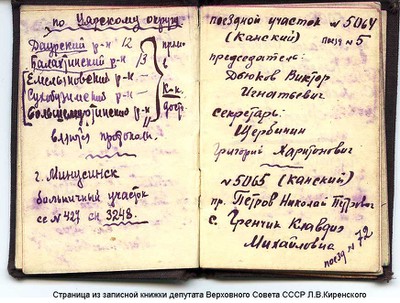 по Ужурскому округ
Даурский р-н 12
Балахтинский р-н 13
Емельяновский р-н —
Сухобузимский р-н —
Большемуртинский р-н 11
в
К-к.
взяты протоколы.
г. Минусинск
больничный участок
се № 427 сн 3248.
поездной участок № 5064
(Канский) поезд № 5
председатель
Дюков Виктор
Игнатьевич
секретарь:
Щербинин
Григорий Харитонович
№ 5065 (Канский)
пр. Петров Николай Петрович
с. Гренчик Клавдия
Михайловна
поезд № 72
Страница из записной книжки депутата Верховного Совета СССР Л.В.Киренского